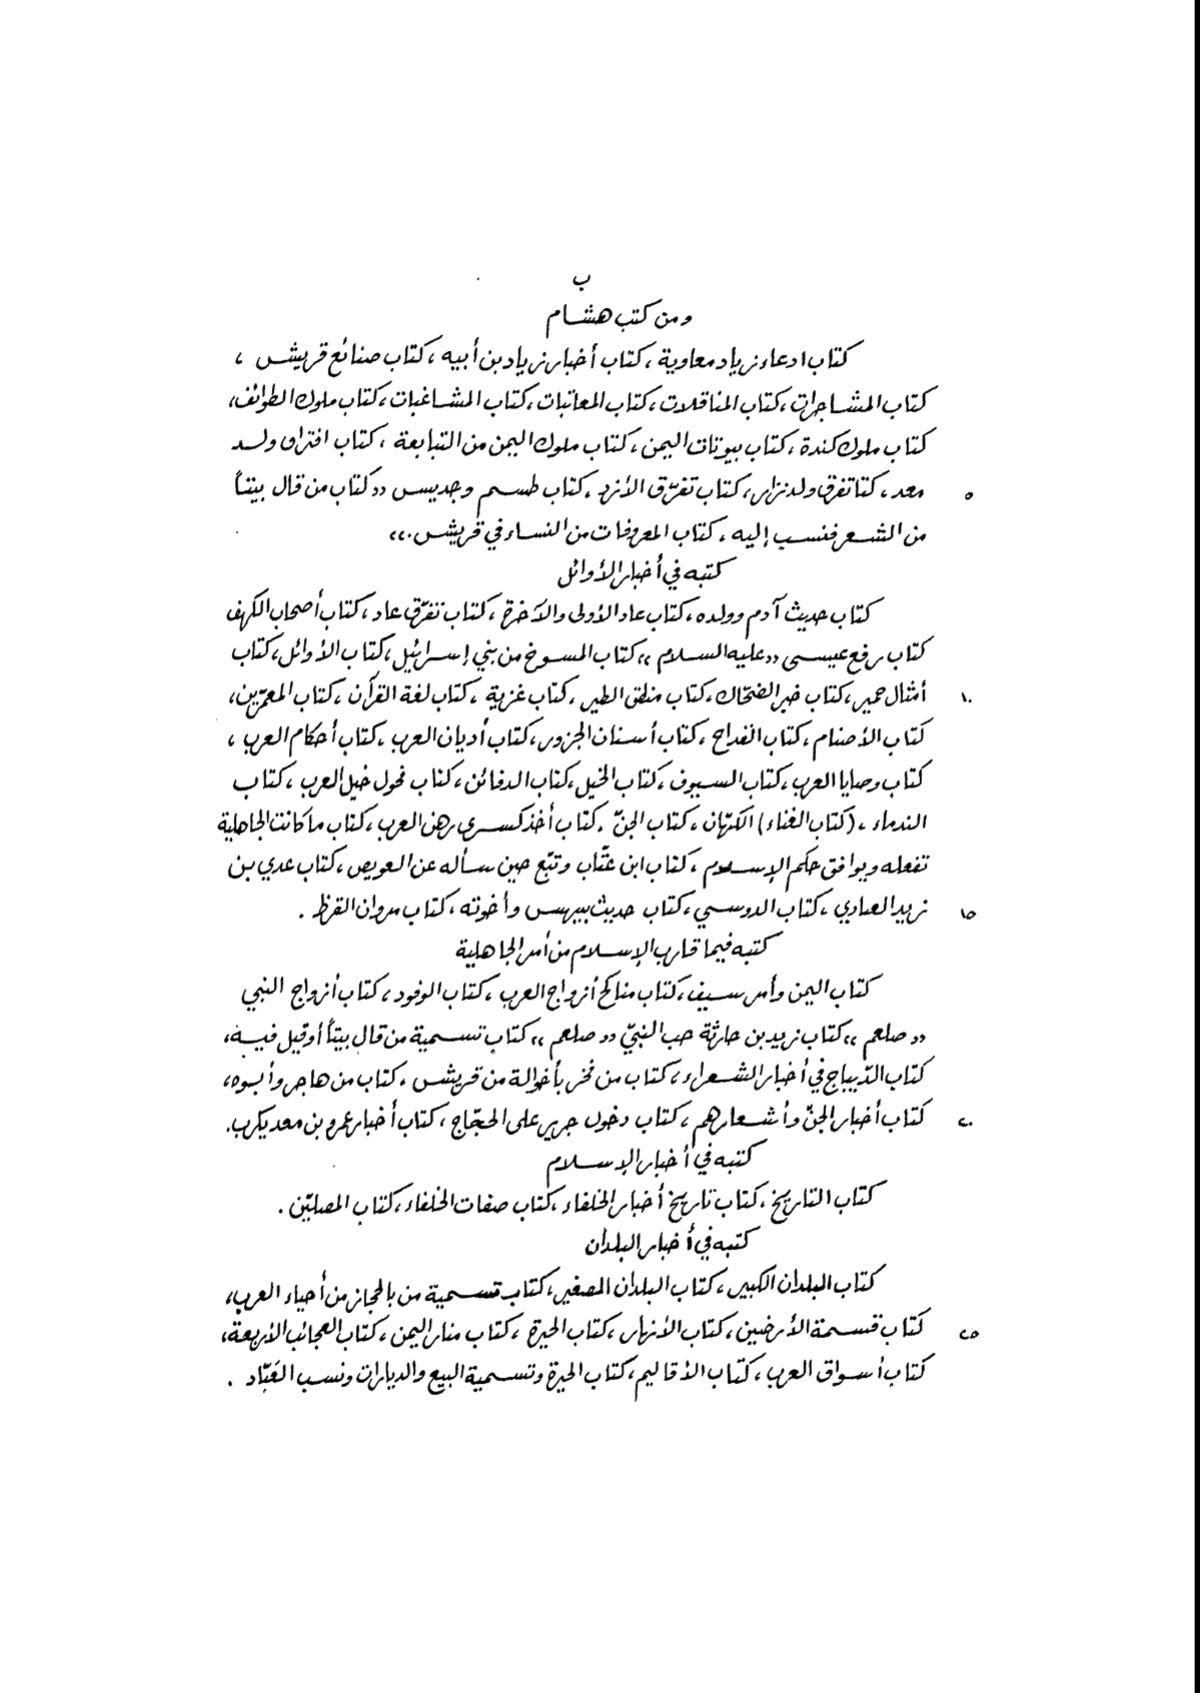 ب
ومن كتب هشام
كتاب ادعاء زياد معاوية، كتاب أخبار زياد بن أبيه، كتاب صنائع قريش،
كتاب المشاجرات، كتاب المناقلات، كتاب المعاتبات، كتاب المشاغبات، كتاب ملوك الطوائف،
كتاب ملوك كندة، كتاب بيوتات اليمن، كتاب ملوك اليمن من التبابعة، كتاب افتراق ولد
٥ معد، كتا تفرق ولد نزار، كتاب تفرّق الأزد، كتاب طسم وجديس «كتاب من قال بيتاً
من الشعر فنسب إليه، كتاب المعروفات من النساء في قريش.»
كتبه في أخبار الأوائل
كتاب حديث آدم وولده، كتاب عاد الأولى والآخرة، كتاب تفرّق عاد، كتاب أصحاب الكهف
كتاب رفع عيسى «عليه السلام» كتاب المسوخ من بني إسرائيل، كتاب الأوائل، كتاب
١٠ أمثال حمير، كتاب خبر الضحّاك، كتاب منطق الطير، كتاب غزية، كتاب لغة القرآن، كتاب المعمّرين،
كتاب الأصنام، كتاب القداح، كتاب أسنان الجزور، كتاب أديان العرب، كتاب أحكام العرب،
كتاب وصايا العرب، كتاب السيوف، كتاب الخيل، كتاب الدفائن، كتاب فحول خيل العرب، كتاب
الندماء، (كتاب الغناء) الكهّان، كتاب الجنّ، كتاب أخذ كسرى رهن العرب، كتاب ما كانت الجاهلية
تفعله ويوافق حكم الإسلام، كتاب ابن عتّاب وتبّع حين سأله عن العويص، كتاب عدي بن
١٥ زيد العبادي، كتاب الدوسي، كتاب حديث بيهس وأخوته، كتاب مروان القرظ.
كتبه فيما قارب الإسلام من أمر الجاهلية
كتاب اليمن وأمر سيف، كتاب مناكح أزواج العرب، كتاب الوفود، كتاب أزواج النبي
«صلعم» كتاب زيد بن حارثة حب النبيّ «صلعم» كتاب تسمية من قال بيتاً أو قيل فيه،
كتاب الدّيباج في أخبار الشعراء، كتاب من فخر بأخواله من قريش، كتاب من هاجر وأبوه،
٢٠ كتاب أخبار الجنّ وأشعارهم، كتاب دخول جرير على الحجّاج، كتاب أخبار عمرو بن معديكرب.
كتبه في أخبار الإسلام
كتاب التاريخ، كتاب تاريخ أخبار الخلفاء، كتاب صفات الخلفاء، كتاب المصلّين.
كتبه في أخبار البلدان
كتاب البلدان الكبير، كتاب البلدان الصغير، كتاب تسمية من بالحجاز من أحياء العرب،
٢٥ كتاب قسمة الأرضين، كتاب الأنهار، كتاب الحيرة، كتاب منار اليمن، كتاب العجائب الأربعة،
كتاب أسواق العرب، كتاب الأقاليم، كتاب الحيرة وتسمية البيع والديارات ونسب العَبّاد.